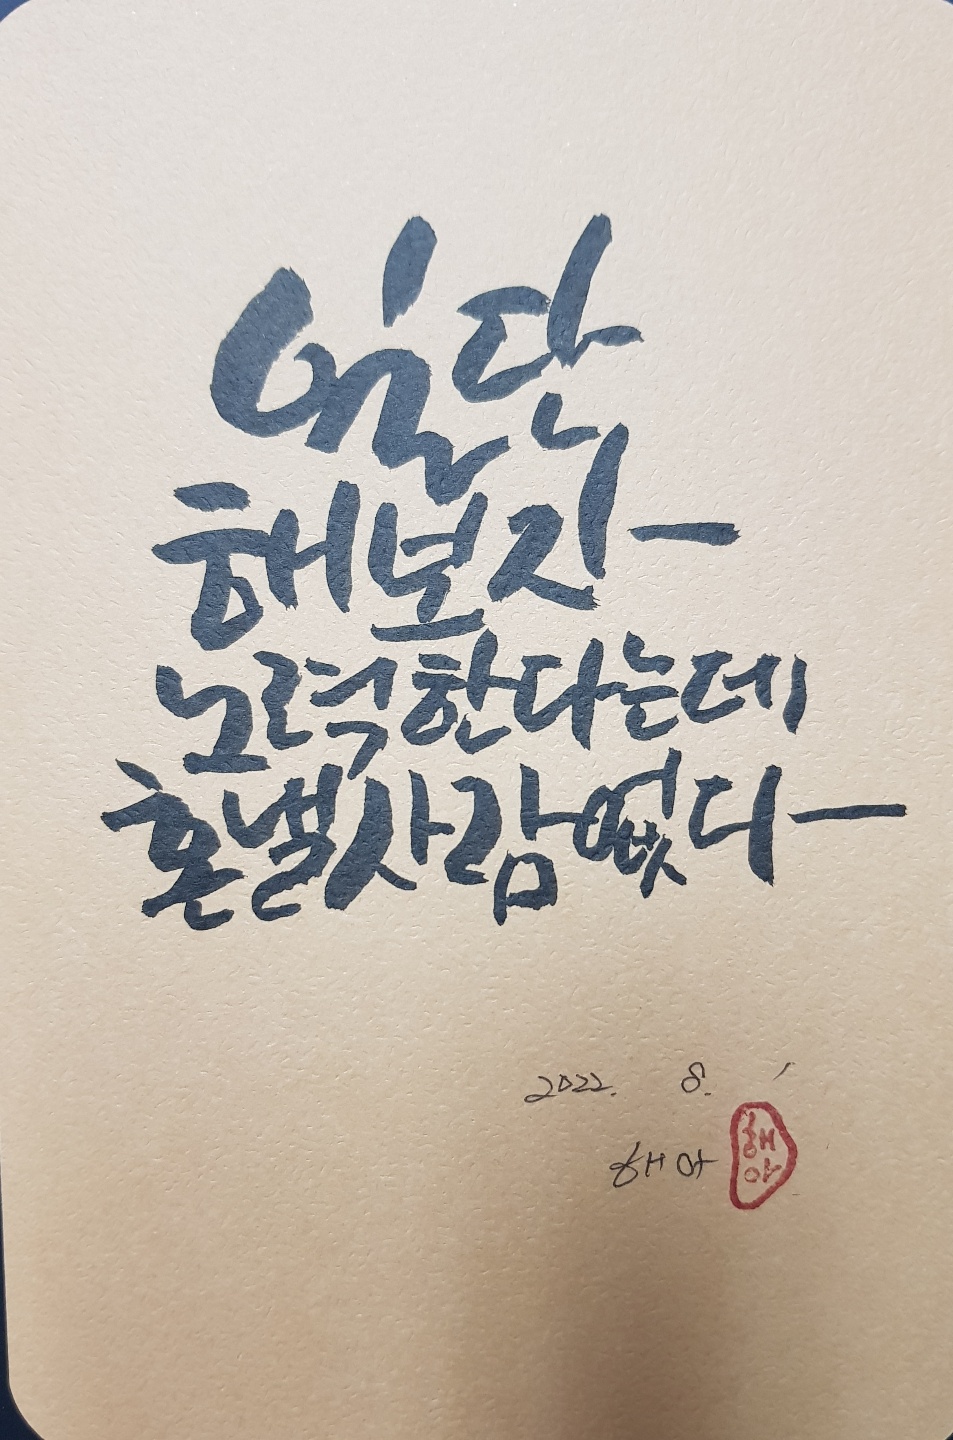 일단
해보자ㅡ
노력한다는데
혼낼사람없다ㅡ
2022. 8.
해아
해아